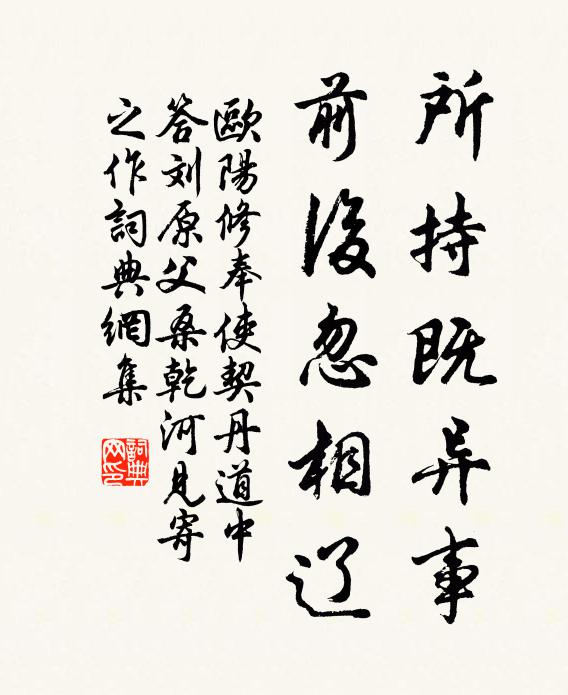 所持既异事
前後忽相辽
歐陽修奉使契丹道中
答刘原父桑乾河见寄
之作詞典網集
詞典网印